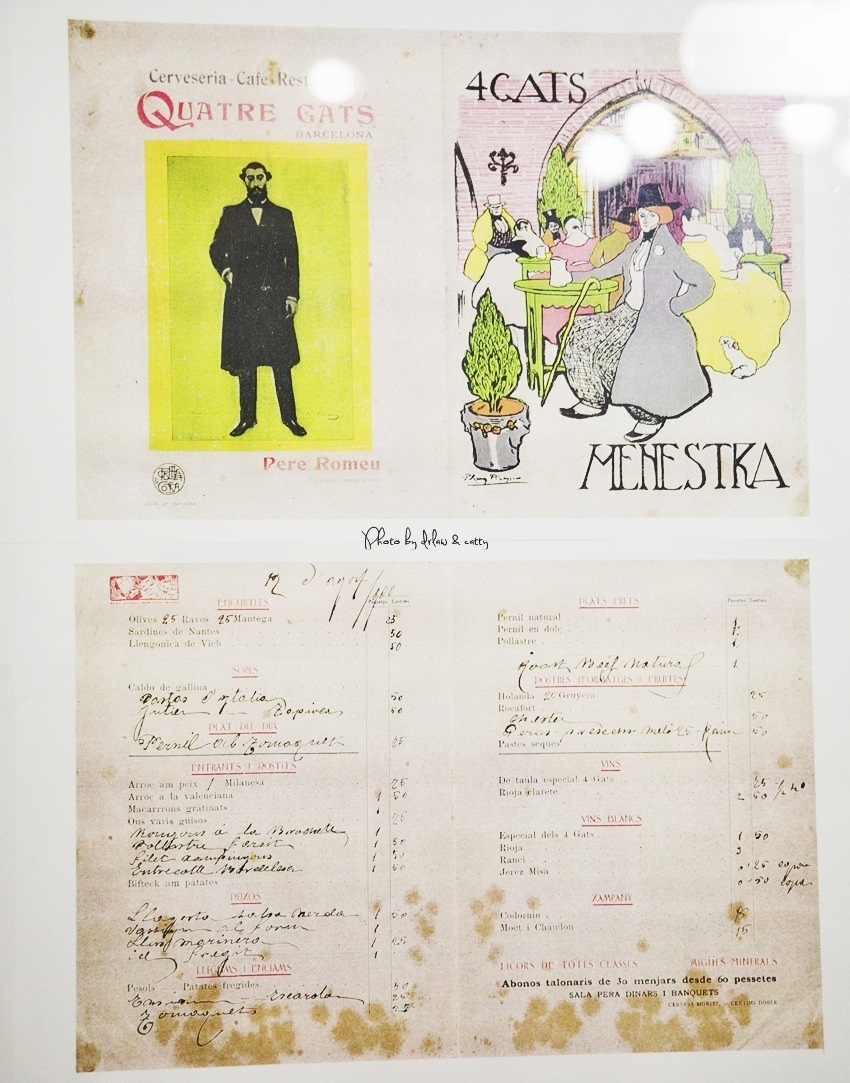 Cerveseria-Cafe-Rest
QUATRE GATS
BARCELONA
Pere Romeu
4 CATS
MENESTRA
Photo by drlaw & catty
12 d'agost
Pessetes Centims
ENCURTITS
Olives 25 Raves 25 Mantega 25
Sardines de Nantes 50
Llengonica de Vich 50
SOPES
Caldo de gallina
Pastas d'Italia 50
Julien Tapioca 50
PLAT DEL DIA
Pernil ab Tomaquet
ENTRANTS I ROSTITS
Arroç am peix / Milanesa
Arroç a la valenciana 1 50
Macarrons gratinats
Ons varis guisos
Ronyons à la Brochete 1
Pollastre farsit 1 50
Filet xampinyons 1 50
Entrecotte Bordelesa 1 50
Bifteck am patates
PEIXOS
Llagosta salsa 1 50
al forn 1
marinera 1 25
id. fregit 1
LLEGUMS I ENCIAMS
Pesols Patates fregides 50
Escarola 25
Tomaquets
Pessetes Centims
PLATS FRETS
Pernil natural 1
Pernil en dolç
Pollastre 1
Roast Beef Natural 1
POSTRES (FORMATGES I FRUITES)
Holanda 25 Gruyera 25
Rocafort
Chester 50
Peras Meló 25 50
Pastes seques
VINS
De taula especial 4 Gats 25
Rioja clarete 2 50
VINS BLANCS
Especial dels 4 Gats 1 50
Rioja 3
Ranci 0'25 copa
Jerez Misa 0'50 copa
XAMPANY
Codorniu 8
Moet i Chandon 15
LICORS DE TOTES CLASSES AIGÜES MINERALS
Abonos talonaris de 30 menjars desde 60 pessetes
SALA PERA DINARS I BANQUETS
CERVESA MORITZ, CENTIMS DOBLE